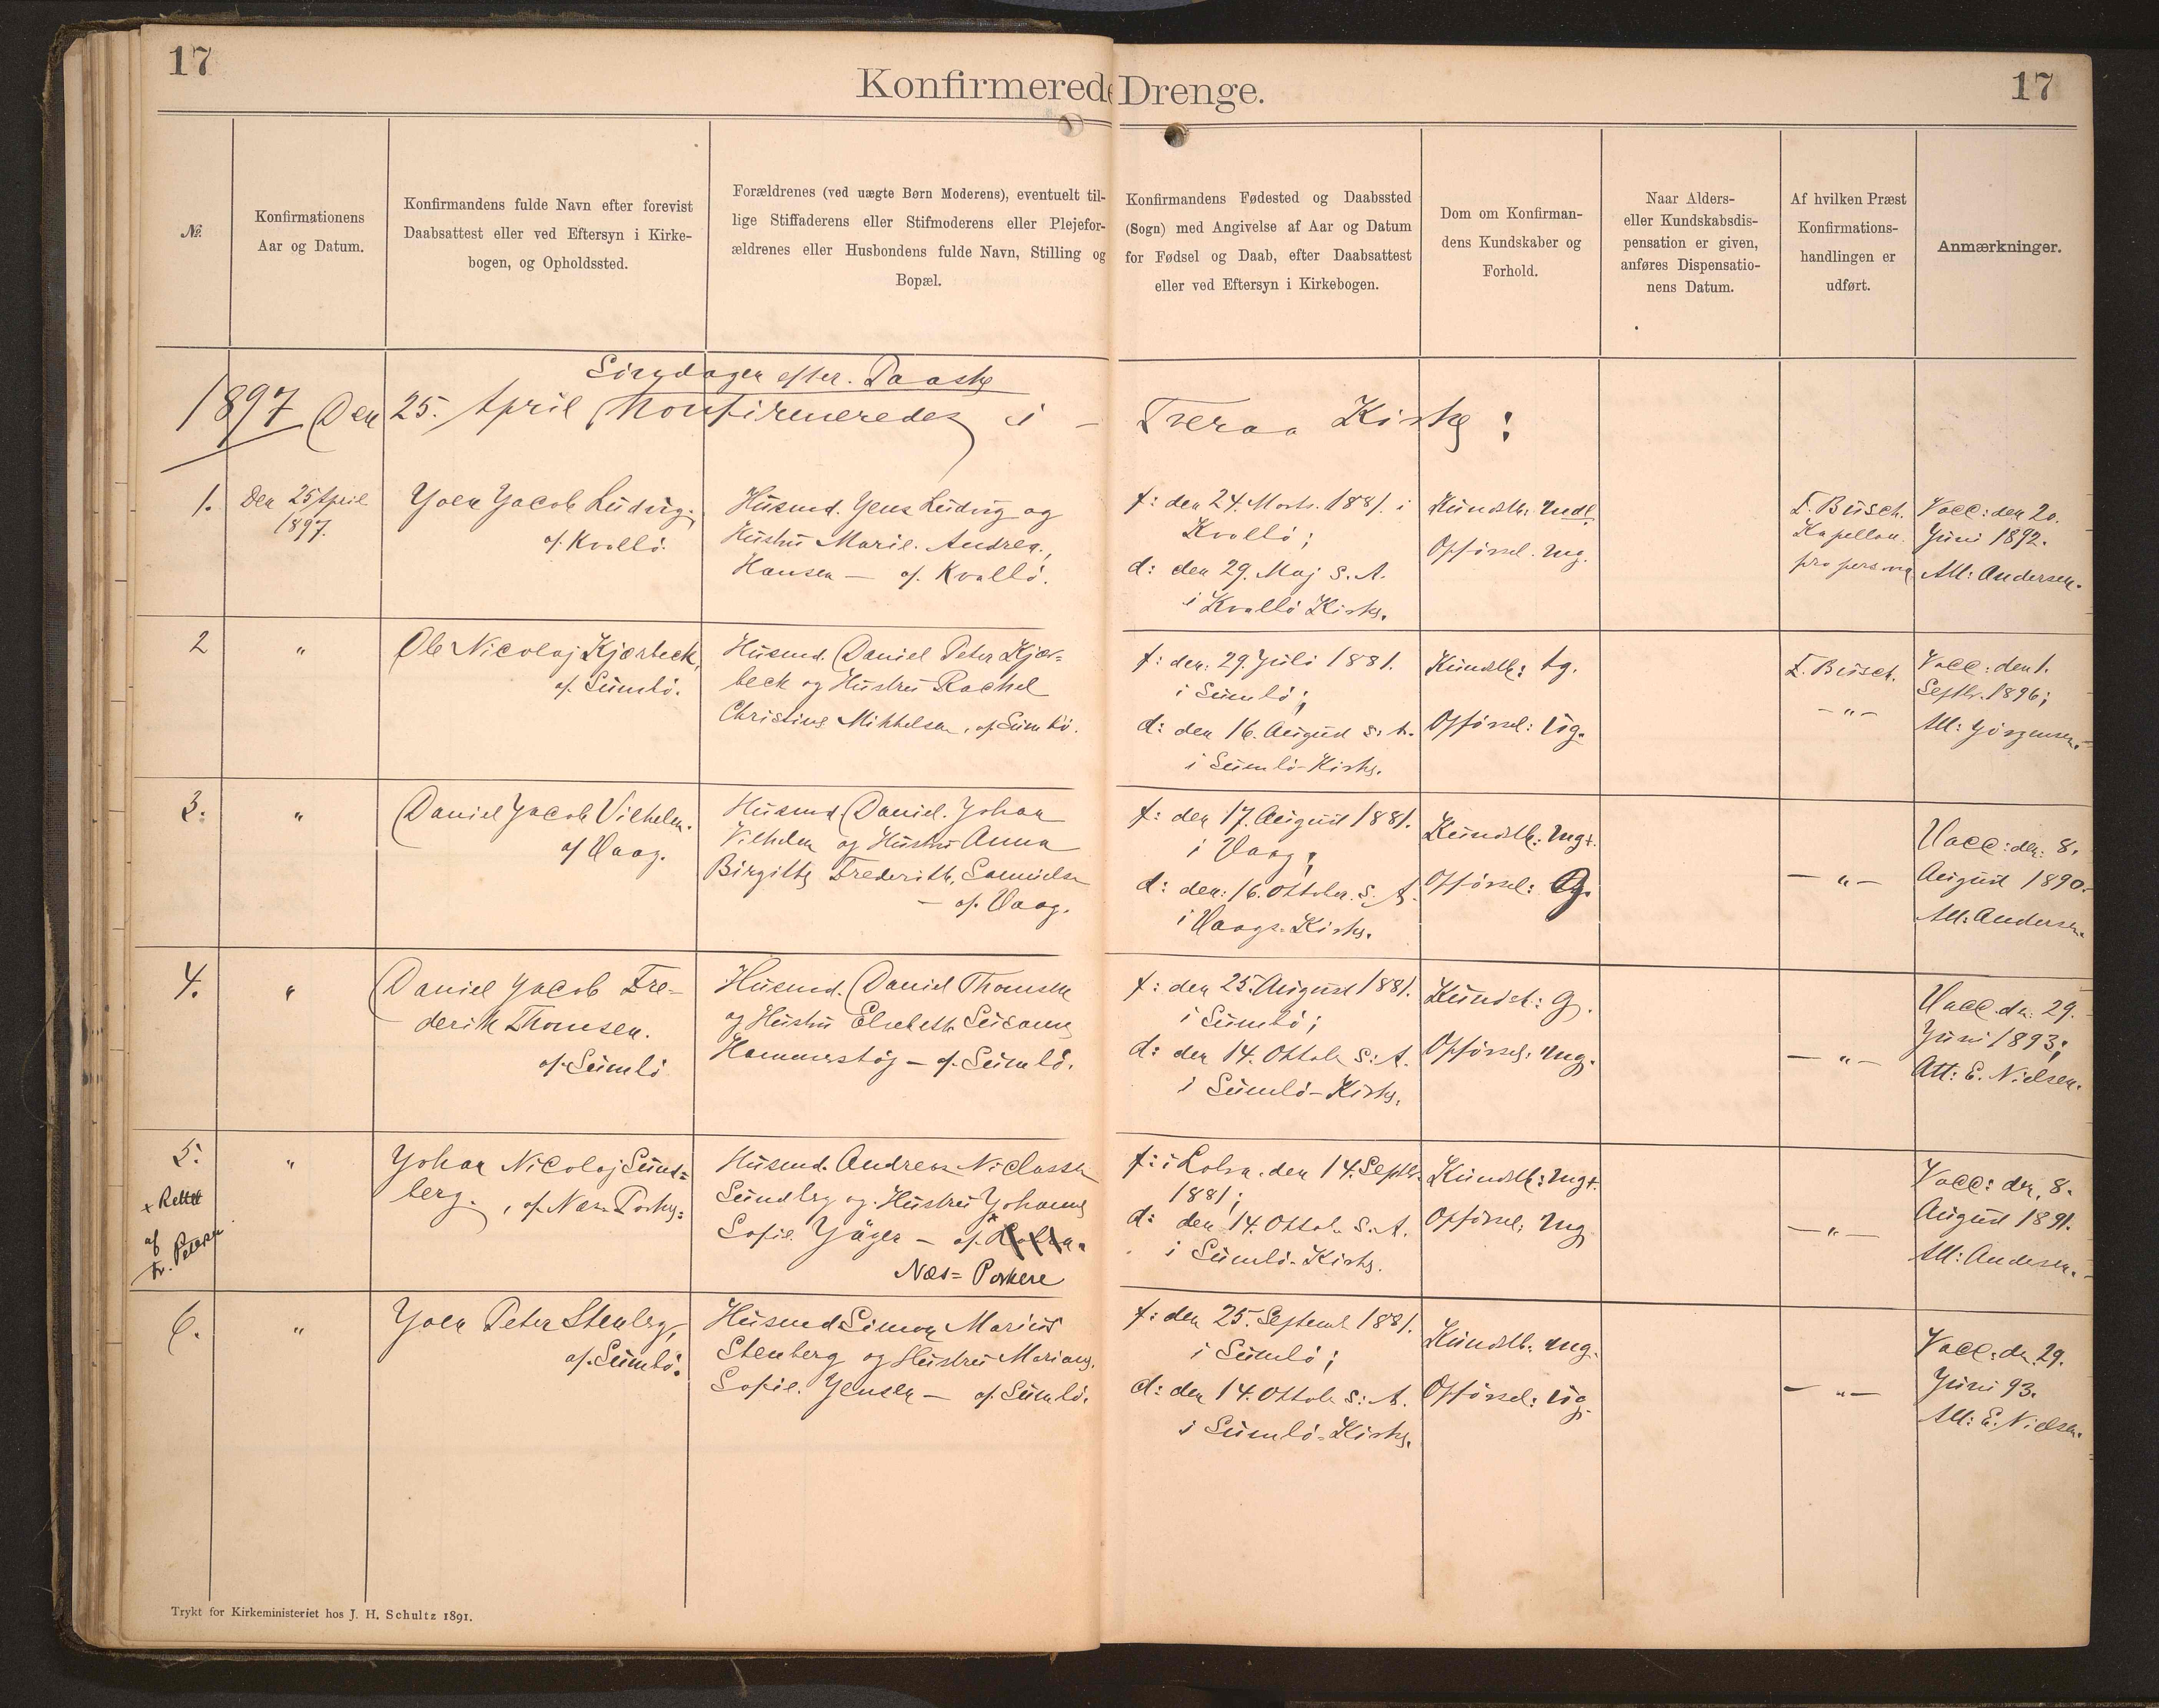 17
Konfirmerede Drenge.
17
№.
Konfirmationens
Aar og Datum.
Konfirmandens fulde Navn efter forevist
Daabsattest eller ved Eftersyn i Kirke-
bogen, og Opholdssted.
Forældrenes (ved uægte Børn Moderens), eventuelt til-
lige Stiffaderens eller Stifmoderens eller Plejefor-
ældrenes eller Husbondens fulde Navn, Stilling og
Bopæl.
Konfirmandens Fødested og Daabssted
(Sogn) med Angivelse af Aar og Datum
for Fødsel og Daab, efter Daabsattest
eller ved Eftersyn i Kirkebogen.
Dom om Konfirman-
dens Kundskaber og
Forhold.
Naar Alders-
eller Kundskabsdis-
pensation er given,
anføres Dispensatio-
nens Datum.
Af hvilken Præst
Konfirmations-
handlingen er
udført.
Anmærkninger.
Søndagen efter Paaske
1897 Den 25. April Konfirmeredes i - Tveraa Kirke:
1.
Den 25 April
1897.
Joen Jacob Ludvig,
af Kvalbö.
Husmd. Jens Ludvig og
Hustru Marie Andrea
Hansen — af Kvalbö.
f: den 24. Marts 1881. i
Kvalbö;
d: den 29. Maj S. A.
i Kvalbö Kirke.
Kundsk: mdl.
Opförsel. mg.
F. Busch.
Kapellan
pro persona
Vacc: den 20.
Juni 1892.
Att: Andersen.
2
"
Ole Nicolaj Kjærbeck,
af Sumbö.
Husmd. Daniel Peter Kjær-
beck og Hustru Rachel
Christine Mikkelsen, af Sumbö.
f: den 29. Juli 1881.
i Sumbö;
d: den 16. August S: A.
i Sumbö-Kirke.
Kundsk: tg.
Opförsel: ug.
F. Busch.
— " —
Vacc: den 1.
Septbr. 1896;
Att: Jörgensen.
3.
"
Daniel Jacob Vilhelm.
af Vaag.
Husmd. Daniel Johan
Vilhelm og Hustru Anna
Birgitte Frederikke Samuelsen
— af Vaag.
f: den 17. August 1881.
i Vaag;
d: den: 16. Oktober S. A.
i Vaags-Kirke.
Kundsk: mg+.
Opförsel: g.
— " —
Vacc: den: 8.
August 1890.
Att: Andersen.
4.
"
Daniel Jacob Fre-
derik Thomsen.
af Sumbö
Husmd. Daniel Thomsen
og Hustru Elsebeth Susanne
Hammershöj — af Sumbö.
f: den 25. August 1881.
i Sumbö;
d: den 14. Oktob. S: A.
i Sumbö-Kirke.
Kundsk: g.
Opförsel: mg.
— " —
Vacc. den: 29.
Juni 1893;
Att: E. Nielsen.
5.
+ Rettet
af
Fr. Petersen
"
Johan Nicolaj Sund-
berg., af Næs-Porkere
Husmd. Andreas Niclassen
Sundberg og Hustru Johanne
Sofie Jäger — af Lobra.
Næs= Porkere
f: i Lobra. den 14. Septbr.
1881;
d: den 14. Oktob. S. A.
i Sumbö-Kirke.
Kundsk: mg+.
Opförsel: mg
— " —
Vacc: den 8.
August 1891.
Att: Andersen.
6.
"
Joen Peter Stenberg,
af Sumbö.
Husmd Simon Marius
Stenberg og Hustru Mariane
Sofie Jensen — af Sumbö.
f: den 25. Septemb 1881.
i Sumbö;
d: den 14. Oktob S: A.
i Sumbö-Kirke.
Kundsk: mg.
Opförsel: ug.
— " —
Vacc: den 29.
Juni 93.
Att: E. Nielsen.
Trykt for Kirkeministeriet hos J. H. Schultz 1891.